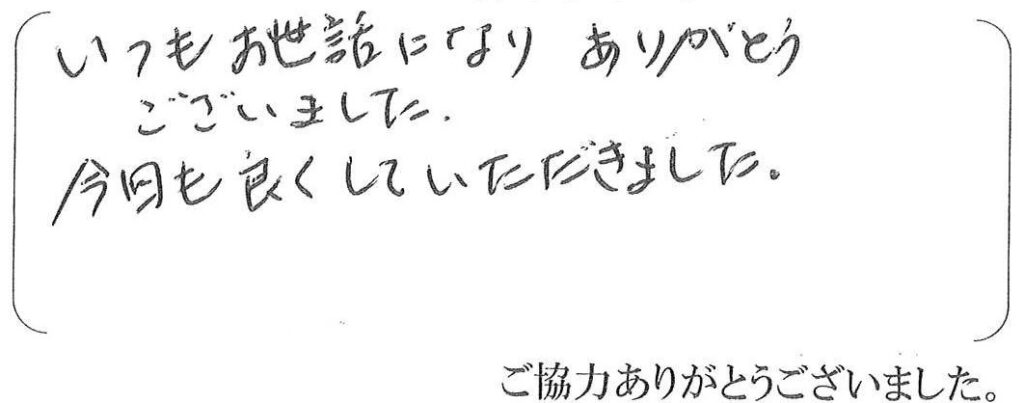 いつもお世話になり ありがとう
ございました.
今回も良くしていただきました。
ご協力ありがとうございました。